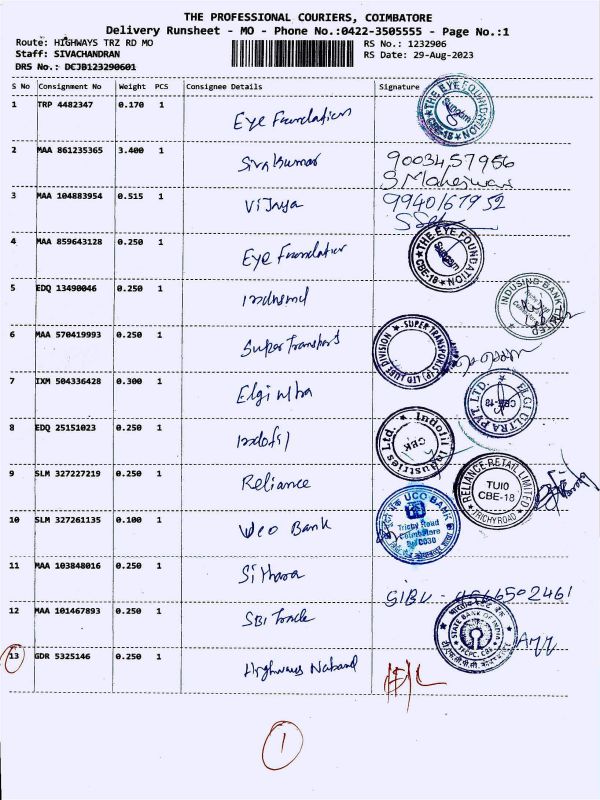 THE PROFESSIONAL COURIERS, COIMBATORE
Delivery Runsheet - MO - Phone No.:0422-3505555 - Page No.:1
Route: HIGHWAYS TRZ RD MO RS No.: 1232906
Staff: SIVACHANDRAN RS Date: 29-Aug-2023
DRS No.: DCJB123290601
S No Consignment No Weight PCS Consignee Details Signature
1 TRP 4482347 0.170 1 Eye Foundation THE EYE FOUNDATION Sungam CBE-18
2 MAA 861235365 3.400 1 Sivakumar 9003457956
S Maheswari
3 MAA 104883954 0.515 1 Vijaya 9940167952
4 MAA 859643128 0.250 1 Eye Foundation THE EYE FOUNDATION Sungam CBE-18
5 EDQ 13490046 0.250 1 INDUSIND BANK LIMITED
6 MAA 570419993 0.250 1 Super Transports SUPER TRANSPORTS (P) LTD LUBE DIVISION
7 IXM 504336428 0.300 1 Elgi ultra ELGI ULTRA PVT. LTD. CBE-18
8 EDQ 25151023 0.250 1 Indofil Indofil Industries Ltd. CBK
9 SLM 327227219 0.250 1 Reliance RELIANCE RETAIL LIMITED TUI0 CBE-18 TRICHY ROAD
10 SLM 327261135 0.100 1 Uco Bank UCO BANK Trichy Road Coimbatore
11 MAA 103848016 0.250 1 Sithara SIBU
12 MAA 101467893 0.250 1 SBI Trade STATE BANK OF INDIA
13 GDR 5325146 0.250 1 Highways
1